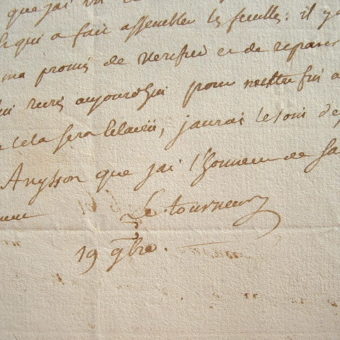 que j'ai vu
qui a fait assembler les feuilles: il y
ma promis de verifier et de repare
aujourdhui pour mettre fin a
Cela sera éclairci, jaurai le soin d
Anysson que jai l'honneur de sa
Le tourneur
19 9bre.